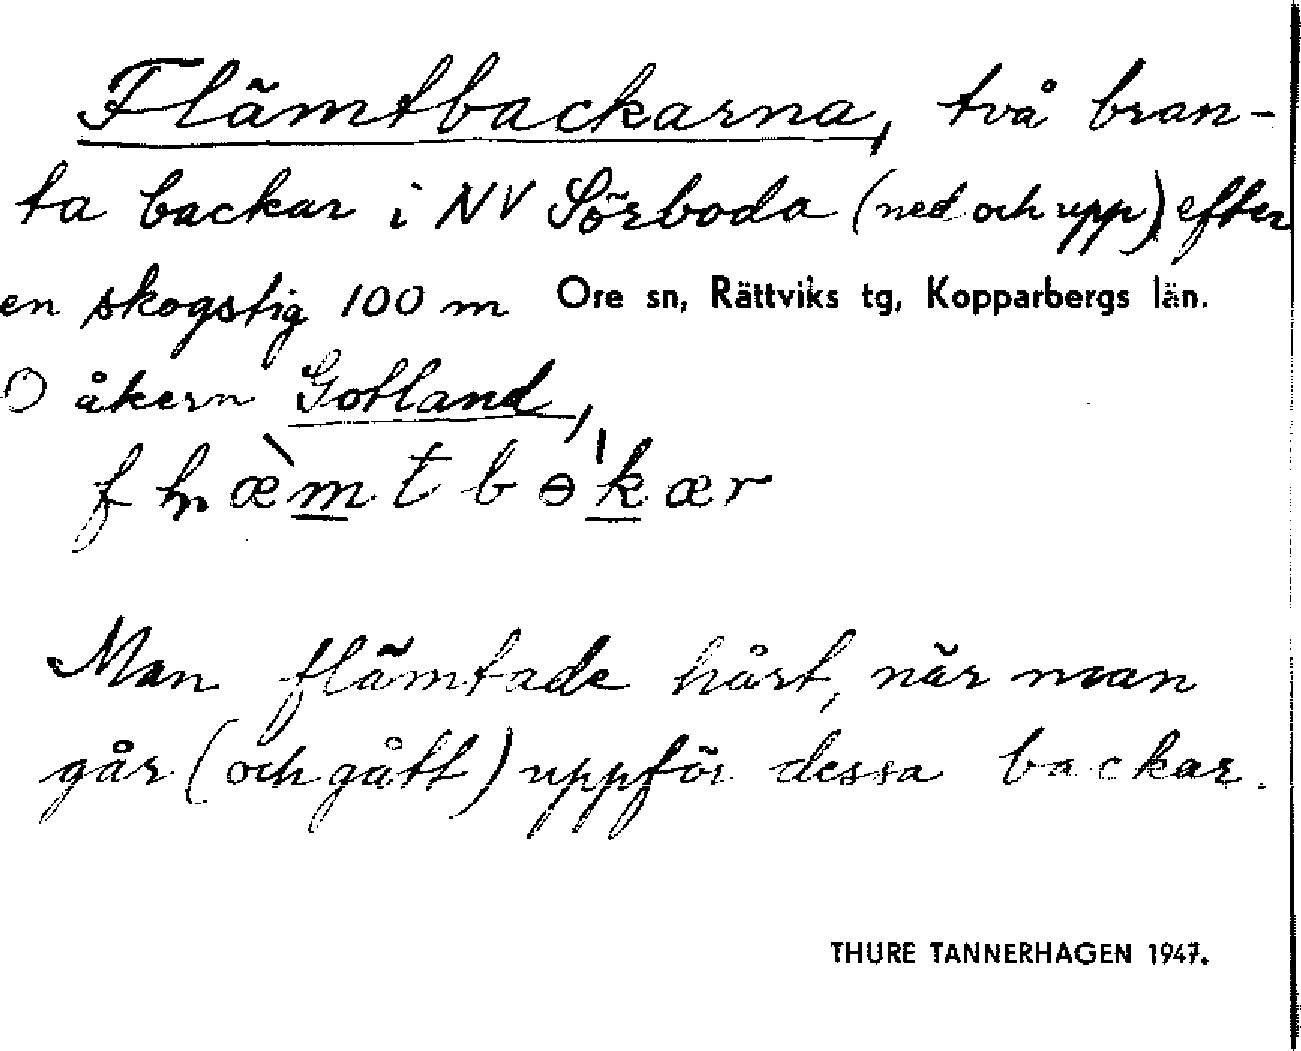 Flämtbackarna, två bran-
ta backar i NV Sörboda (ned och upp) efter
en skogstig 100 m Ore sn, Rättviks tg, Kopparbergs län.
O åkern Gotland,
Man flämtade hårt, när man
går (och gått) uppför dessa backar.
THURE TANNERHAGEN 1947.